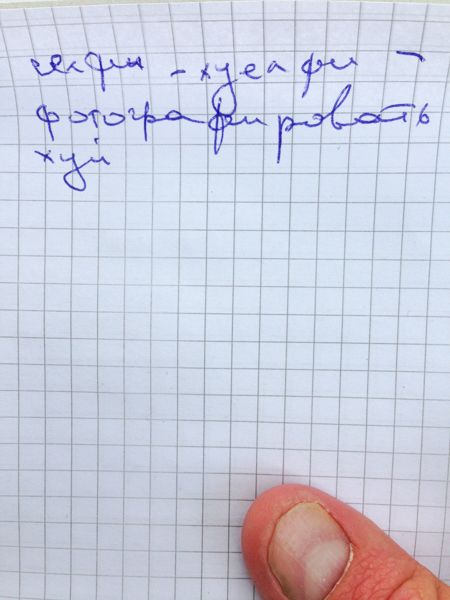 секфи - хуеафи -
фотографировать
хуй